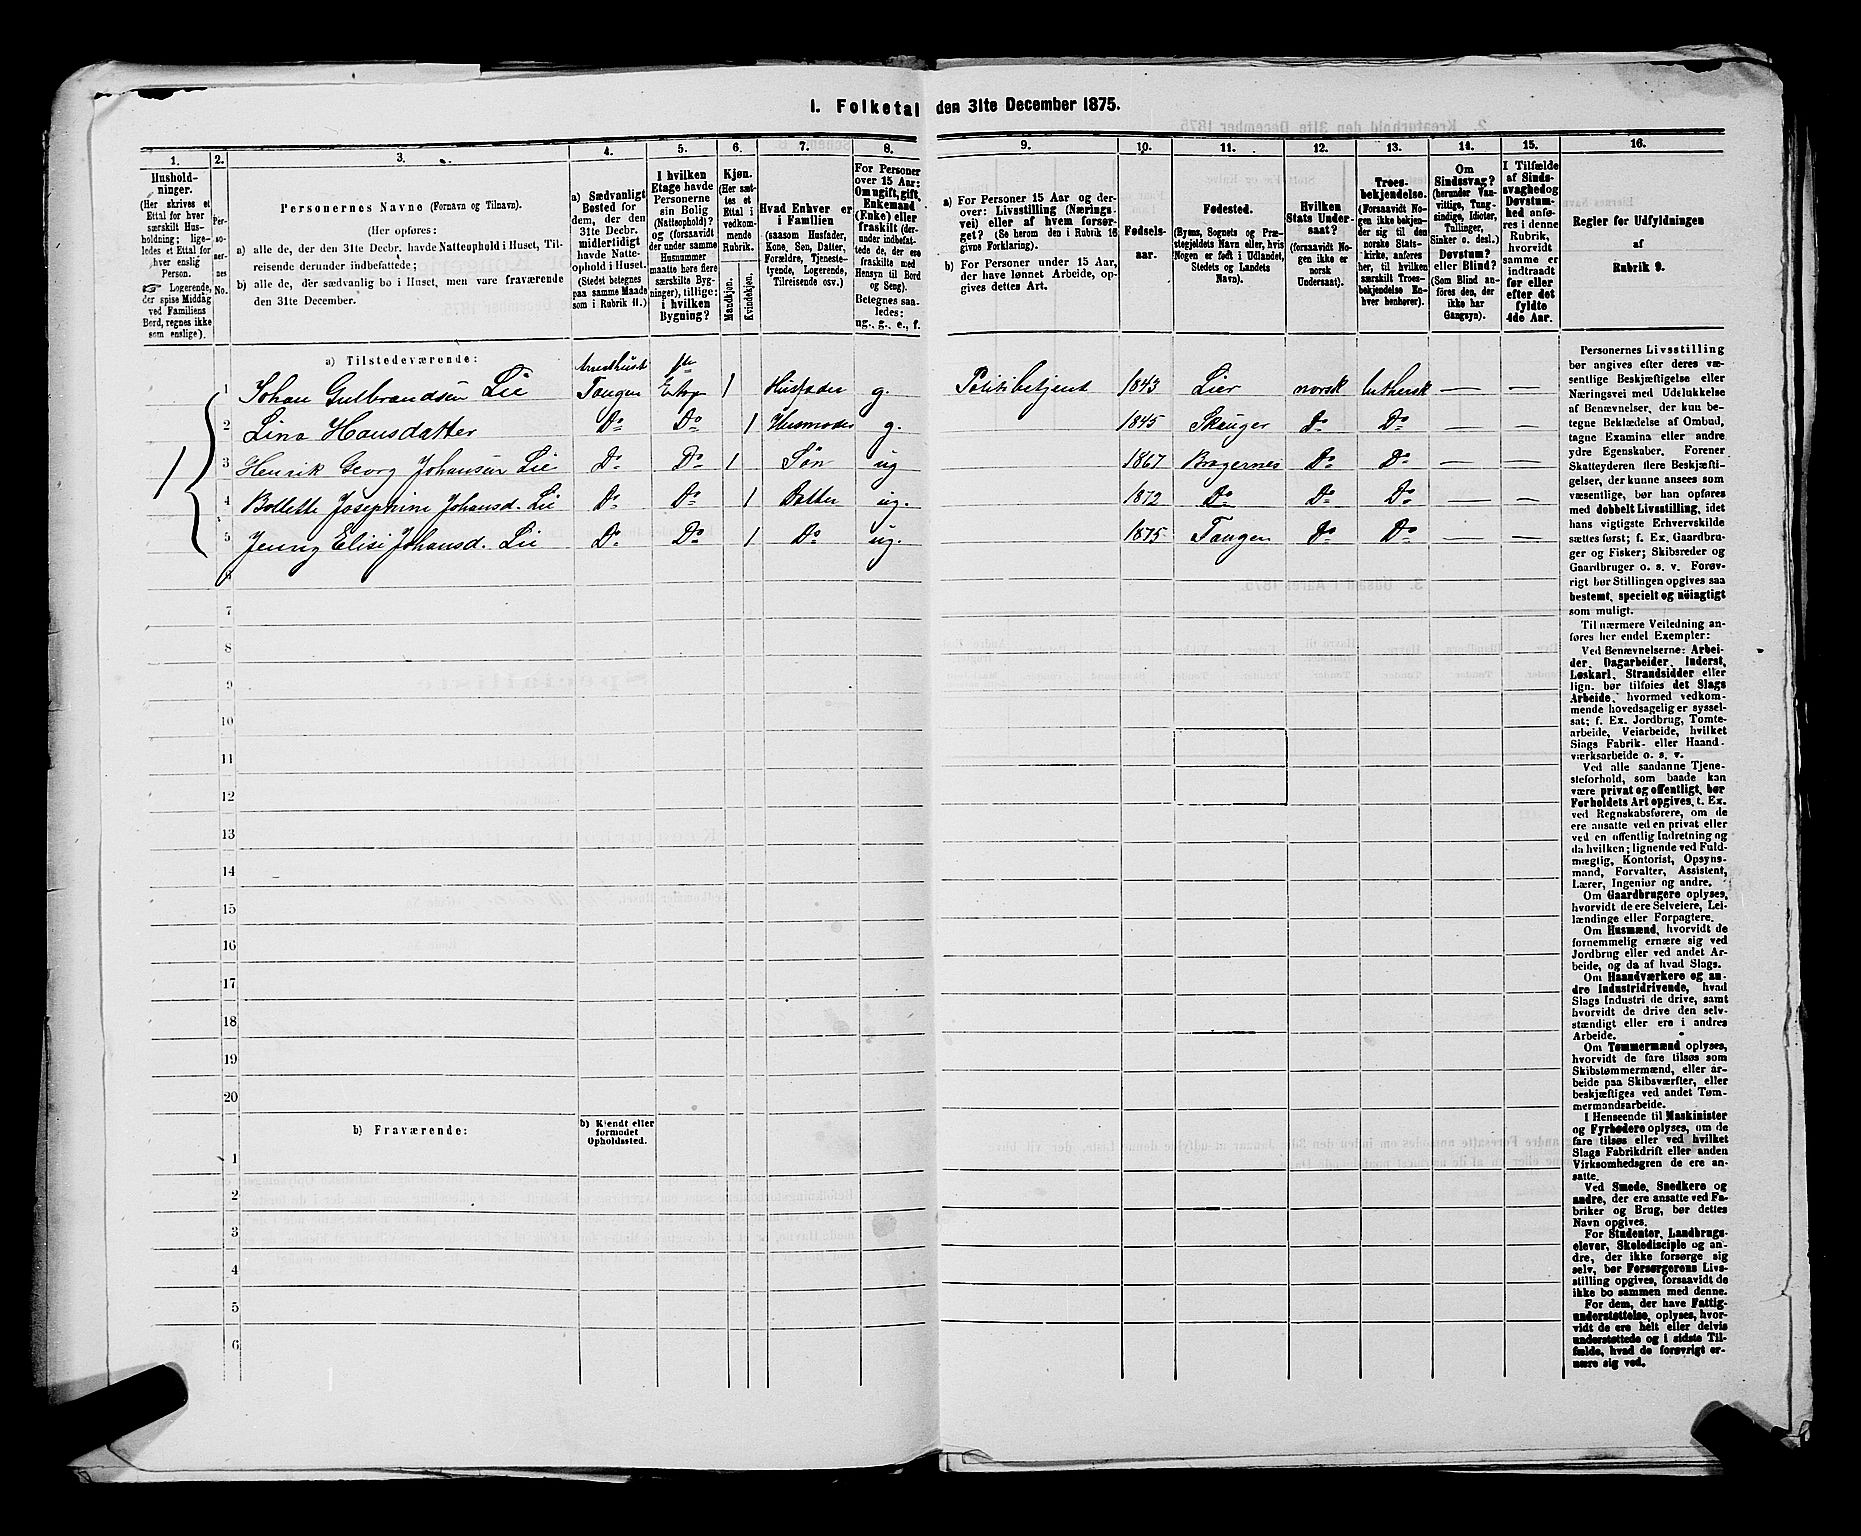 1. Folketal den 31te December 1875.
1. 2. 3. 4. 5. 6. 7. 8. 9. 10. 11. 12. 13. 14. 15. 16.
Hushold-
ninger.
(Her skrives et
Ettal for hver
særskilt Hus-
holdning; lige-
ledes et Ettal for
hver enslig
Person.
☞ Logerende,
der spise Middag
ved Familiens
Bord, regnes ikke
som enslige).
Per-
so-
ner-
nes
No.
Personernes Navne (Fornavn og Tilnavn).
(Her opføres:
a) alle de, der den 31te Decbr. havde Natteophold i Huset, Til-
reisende derunder indbefattede;
b) alle de, der sædvanlig bo i Huset, men vare fraværende
den 31te December.
a) Sædvanligt
Bosted for
dem, der den
31te Decbr.
midlertidigt
havde Natte-
ophold i Huset.
(Stedet betegnes
paa samme Maade
som i Rubrik 11.)
I hvilken
Etage havde
Personerne
sin Bolig
(Natteophold)?
og (forsaavidt
der under samme
Husnummer
maatte høre flere
særskilte Byg-
ninger), tillige:
i hvilken
Bygning?
Kjøn.
(Her sæt-
tes et
Ettal i
vedkom-
mende
Rubrik.
Mandkjøn.
Kvindekjøn.
Hvad Enhver er
i Familien
(saasom Husfader,
Kone, Søn, Datter,
Forældre, Tjeneste-
tyende, Logerende,
Tilreisende osv.)
For Personer
over 15 Aar:
Om ugift, gift,
Enkemand
(Enke) eller
fraskilt (der-
under indbefat-
tede de, der ere
fraskilte med
Hensyn til Bord
og Seng).
Betegnes saa-
ledes:
ug., g., e., f.
a) For Personer 15 Aar og der-
over: Livsstilling (Nærings-
vei) eller af hvem forsør-
get? (Se herom den i Rubrik 16
givne Forklaring).
b) For Personer under 15 Aar,
der have lønnet Arbeide, op-
gives dettes Art.
Fødsels-
aar.
Fødested.
(Byens, Sognets og Præ-
stegjeldets Navn eller, hvis
Nogen er født i Udlandet,
Stedets og Landets
Navn).
Hvilken
Stats Under-
saat?
(forsaavidt No-
gen ikke er
norsk
Undersaat).
Troes-
bekjendelse.
(Forsaavidt No-
gen ikke bekjen-
der sig til den
norske Stats-
kirke, anføres
her, til hvilken
særskilt Troes-
bekjendelse En-
hver henhører).
Om
Sindssvag?
(herunder Van-
vittige, Tung-
sindige, Idioter,
Tullinger,
Sinker o. desl.)
Døvstum?
eller Blind?
(Som Blind an-
føres den, der
ikke har
Gangsyn).
I Tilfælde
af Sinds-
svaghed og
Døvstum-
hed anfø-
res i denne
Rubrik,
hvorvidt
samme er
indtraadt
før eller
efter det
fyldte
4de Aar.
Regler for Udfyldningen
af
Rubrik 9.
a) Tilstedeværende:
1 Johan Gulbrandsen Lie Tangen 1ste Etage 1 Husfader g. Politibetjent 1843 Lier norsk luthersk — —
2 Lina Hansdatter Do Do 1 Husmoder g. 1845 Skouger Do Do — —
1 3 Henrik Georg Johansen Lie Do Do 1 Søn ug 1867 Bragernes Do Do — —
4 Bollette Josephine Johansd. Lie Do Do 1 Datter ug. 1872 Do Do Do — —
5 Jenny Elisi Johansd. Lie Do Do 1 Do ug. 1875 Tangen Do Do — —
6
7
8
9
10
11
12
13
14
15
16
17
18
19
20
b) Fraværende:
b) Kjendt eller
formodet
Opholdssted.
1
2
3
4
5
6
Personernes Livsstilling
bør angives efter deres væ-
sentlige Beskjæftigelse eller
Næringsvei med Udelukkelse
af Benævnelser, der kun be-
tegne Beklædelse af Ombud,
tagne Examina eller andre
ydre Egenskaber. Forener
Skatteyderen flere Beskjæfti-
gelser, der kunne ansees som
væsentlige, bør han opføres
med dobbelt Livsstilling, idet
hans vigtigste Erhvervskilde
sættes først; f. Ex. Gaardbru-
ger og Fisker; Skibsreder og
Gaardbruger o. s. v. Forøv-
rigt bør Stillingen opgives saa
bestemt, specielt og nøiagtigt
som muligt.
Til nærmere Veiledning an-
føres her endel Exempler:
Ved Benævnelserne: Arbei-
der, Dagarbeider, Inderst,
Løskarl, Strandsidder eller
lign. bør tilføies det Slags
Arbeide, hvormed vedkom-
mende hovedsagelig er syssel-
sat; f. Ex. Jordbrug, Tomte-
arbeide, Veiarbeide, hvilket
Slags Fabrik- eller Haand-
værksarbeide o. s. v.
Ved alle saadanne Tjene-
steforhold, som baade kan
være privat og offentligt, bør
Forholdets Art opgives, t. Ex.
ved Regnskabsførere, om de
ere ansatte ved en privat eller
ved en offentlig Indretning og
da hvilken; lignende ved Fuld-
mægtig, Kontorist, Opsyns-
mand, Forvalter, Assistent,
Lærer, Ingeniør og andre.
Om Gaardbrugere oplyses,
hvorvidt de ere Selveiere, Lei-
lændinge eller Forpagtere.
Om Husmænd, hvorvidt de
fornemmelig ernære sig ved
Jordbrug eller ved andet Ar-
beide, og da af hvad Slags.
Om Haandværkere og an-
dre Industridrivende, hvad
Slags Industri de drive, samt
hvorvidt de drive den selv-
stændigt eller ere i andres
Arbeide.
Om Tømmermænd oplyses,
hvorvidt de fare tilsøs som
Skibstømmermænd, eller ar-
beide paa Skibsværfter, eller
beskjæftiges ved andet Tøm-
mermandsarbeide.
I Henseende til Maskinister
og Fyrbødere oplyses, om de
fare tilsøs eller ved hvilket
Slags Fabrikdrift eller anden
Virksomhedsgren de ere an-
satte.
Ved Smede, Snedkere og
andre, der ere ansatte ved Fa-
briker og Brug, bør dettes
Navn opgives.
For Studenter, Landbrugs-
elever, Skoledisciple og an-
dre, der ikke forsørge sig
selv, bør Forsørgerens Livs-
stilling opgives, forsaavidt de
ikke bo sammen med denne.
For dem, der have Fattig-
understøttelse, oplyses, hvor-
vidt de ere helt eller delvis
understøttede og i sidste Til-
fælde, hvad de forøvrigt er-
nære sig ved.